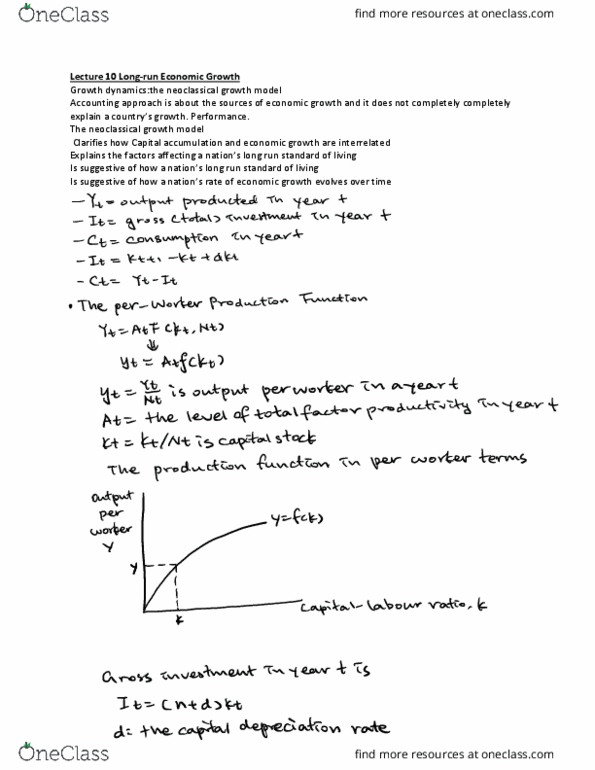 OneClass
find more resources at oneclass.com
Lecture 10 Long-run Economic Growth
Growth dynamics:the neoclassical growth model
Accounting approach is about the sources of economic growth and it does not completely completely
explain a country's growth. Performance.
The neoclassical growth model
Clarifies how Capital accumulation and economic growth are interrelated
Explains the factors affecting a nation's long run standard of living
Is suggestive of how a nation's long run standard of living
Is suggestive of how a nation's rate of economic growth evolves over time
- Yt = output producted in year t
- It = gross (total) investment in year t
- Ct = consumption in year t
- It = Kt+1 - Kt + dKt
- Ct = Yt - It
• The per-worker Production Function
Yt = AtF(kt, Nt)
⇓
yt = Atf(kt)
yt = Yt/Nt is output per worker in a year t
At = the level of total factor productivity in year t
Kt = Kt/Nt is capital stock
The production function in per worker terms
output
per
worker
Y
y=f(k)
y
k
Capital-labour ratio, k
Gross investment in year t is
It = (n+d)kt
d: the capital depreciation rate
OneClass
find more resources at oneclass.com